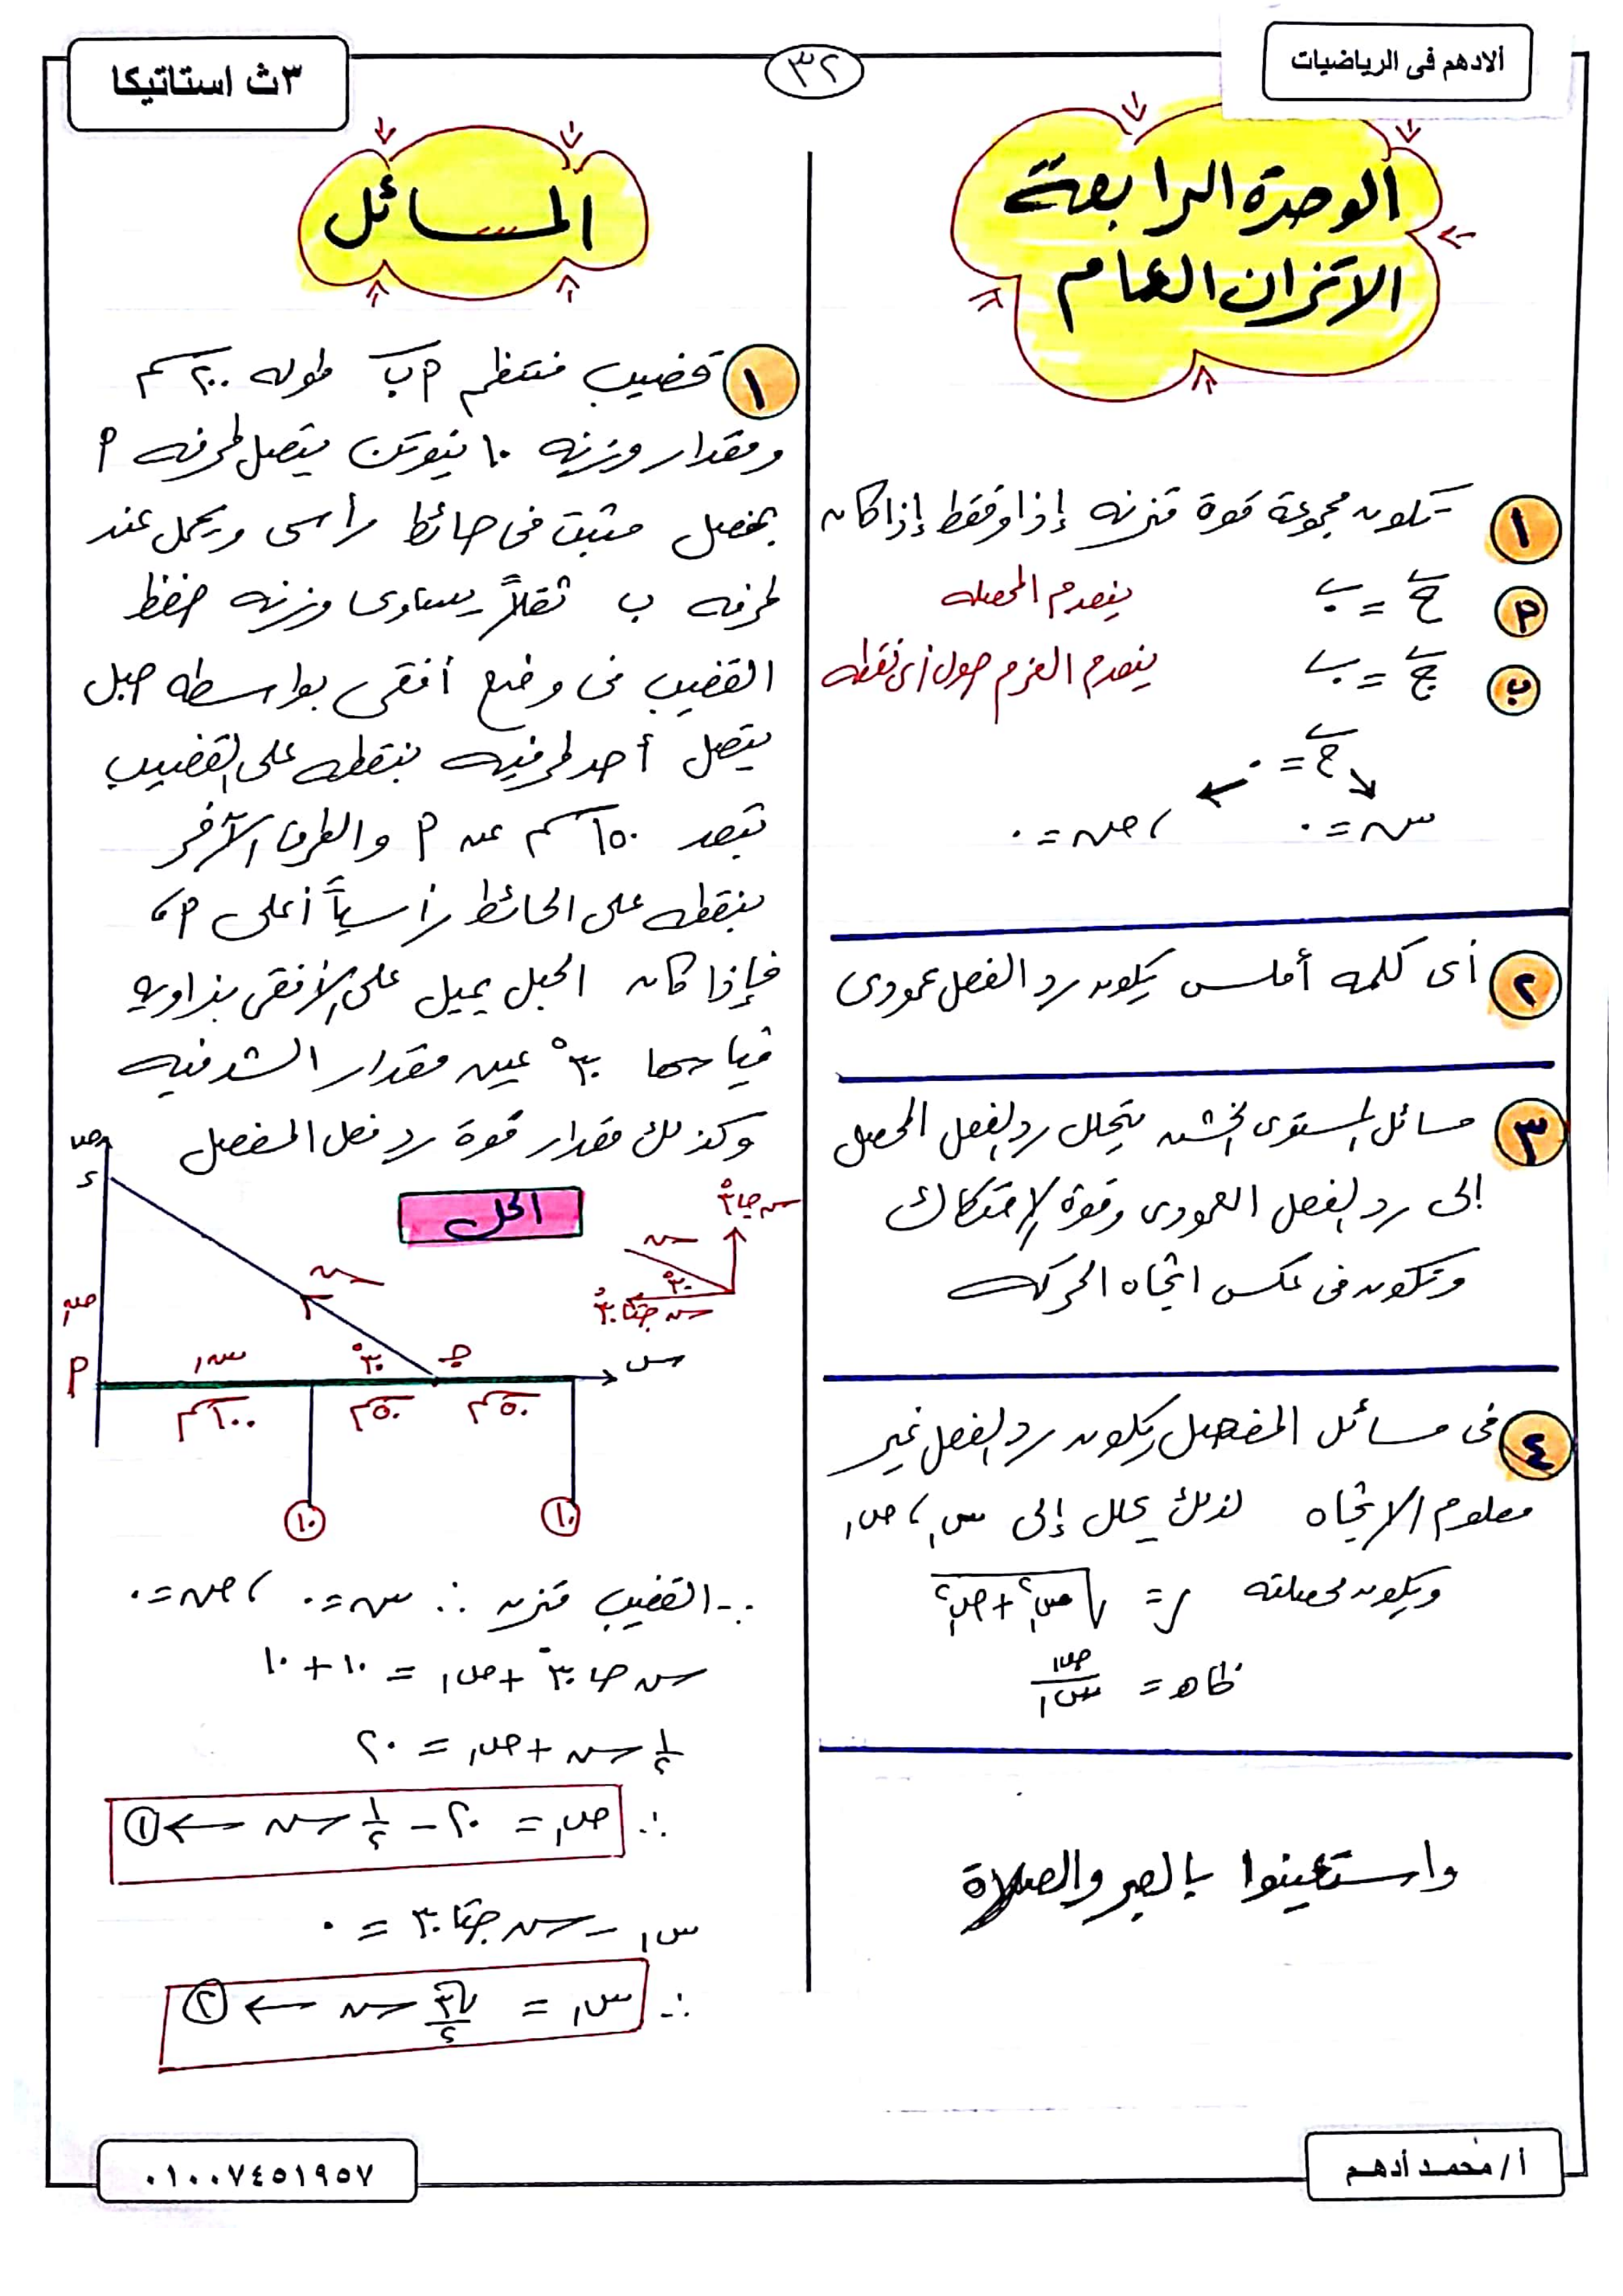 ألادهم فى الرياضيات
٣٢
٣ث استاتيكا
الوحدة الرابعة
الاتزان العام
١ تكون مجموعة قوة متزنه إذا وفقط إذا كان
P ح = ٠ ينعدم المحصله
ب ج = ٠ ينعدم العزم حول أى نقطه
ح = ٠
س = ٠ ، ص = ٠
٢ أى كلمه أملس يكون رد الفعل عمودى
٣ مسائل المستوى الخشن يتحلل رد الفعل المحصل
إلى رد الفعل العمودى وقوة الإحتكاك
وتكون فى عكس اتجاه الحركه
٤ فى مسائل المفصل يكون رد الفعل غير
معلوم الاتجاه لذلك يحلل إلى س١ ، ص١
ويكون محصلته ر = √(س١² + ص١²)
ظاه = ص١/س١
واستعينوا بالصبر والصلاة
المسائل
١ قضيب منتظم P ب طوله ٢٠٠ سم
ومقدار وزنه ١٠ نيوتن يتصل طرفه P
بمفصل مثبت فى حائط رأسى ويحمل عند
طرفه ب ثقلاً يساوى وزنه حفظ
القضيب فى وضع أفقى بواسطه حبل
يتصل أحد طرفيه بنقطه على القضيب
تبعد ١٥٠ سم عن P والطرف الآخر
بنقطه على الحائط رأسياً أعلى P ،
فإذا كان الحبل يميل على الأفقى بزاويه
قياسها ٣٠° عين مقدار الشد فيه
وكذلك مقدار قوة رد فعل المفصل
الحل
ص
ء
ش
ش جا ٣٠°
ش
٣٠°
ش جتا ٣٠°
ص١
P
س١
٣٠°
ج
س
١٠٠ سم
٥٠ سم
٥٠ سم
١٠
١٠
∵ القضيب متزن ∴ س = ٠ ، ص = ٠
ش جا ٣٠° + ص١ = ١٠ + ١٠
١/٢ ش + ص١ = ٢٠
∴ ص١ = ٢٠ - ١/٢ ش ← ①
س١ - ش جتا ٣٠ = ٠
∴ س١ = √٣/٢ ش ← ②
أ/ محمد أدهم
٠١٠٠٧٤٥١٩٥٧